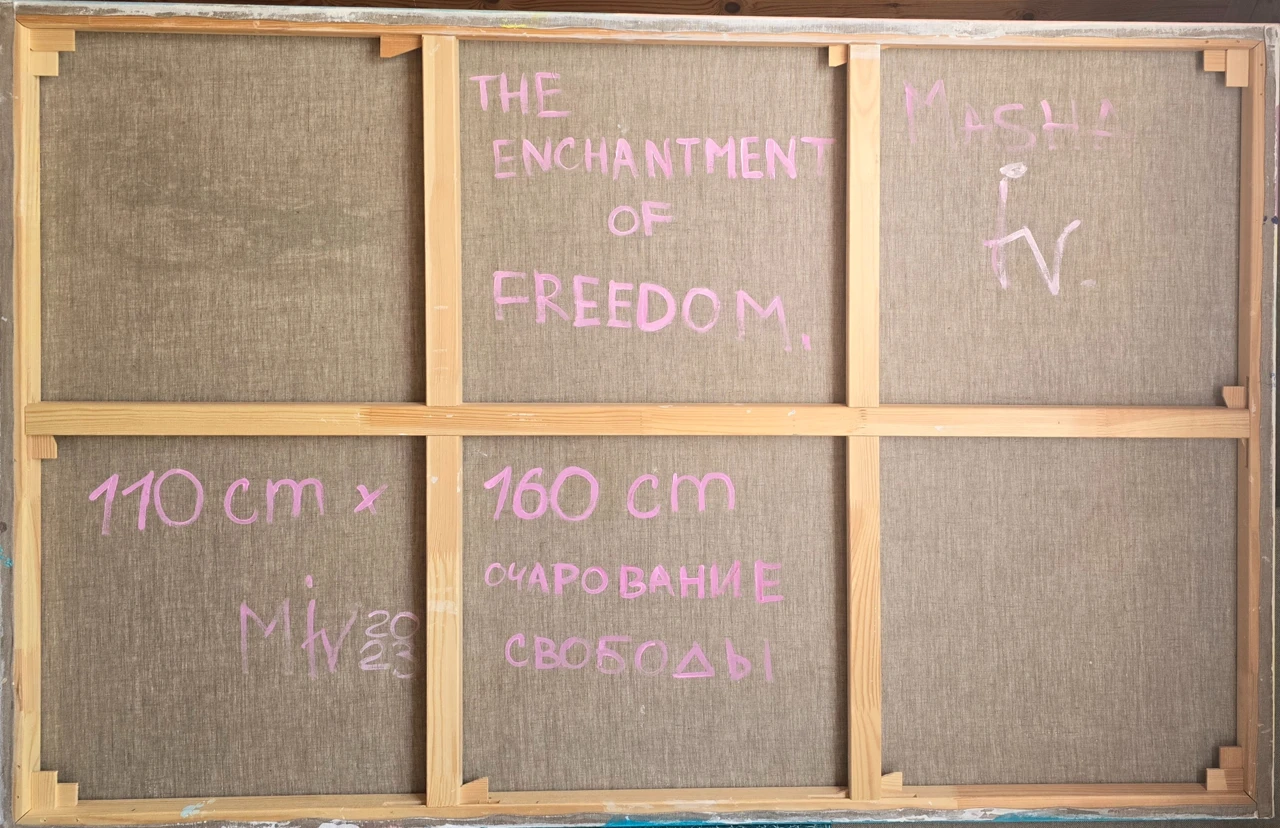 THE
ENCHANTMENT
OF
FREEDOM.
MASHA
iv.
110 cm x 160 cm
Miv 2023
ОЧАРОВАНИЕ
СВОБОДЫ